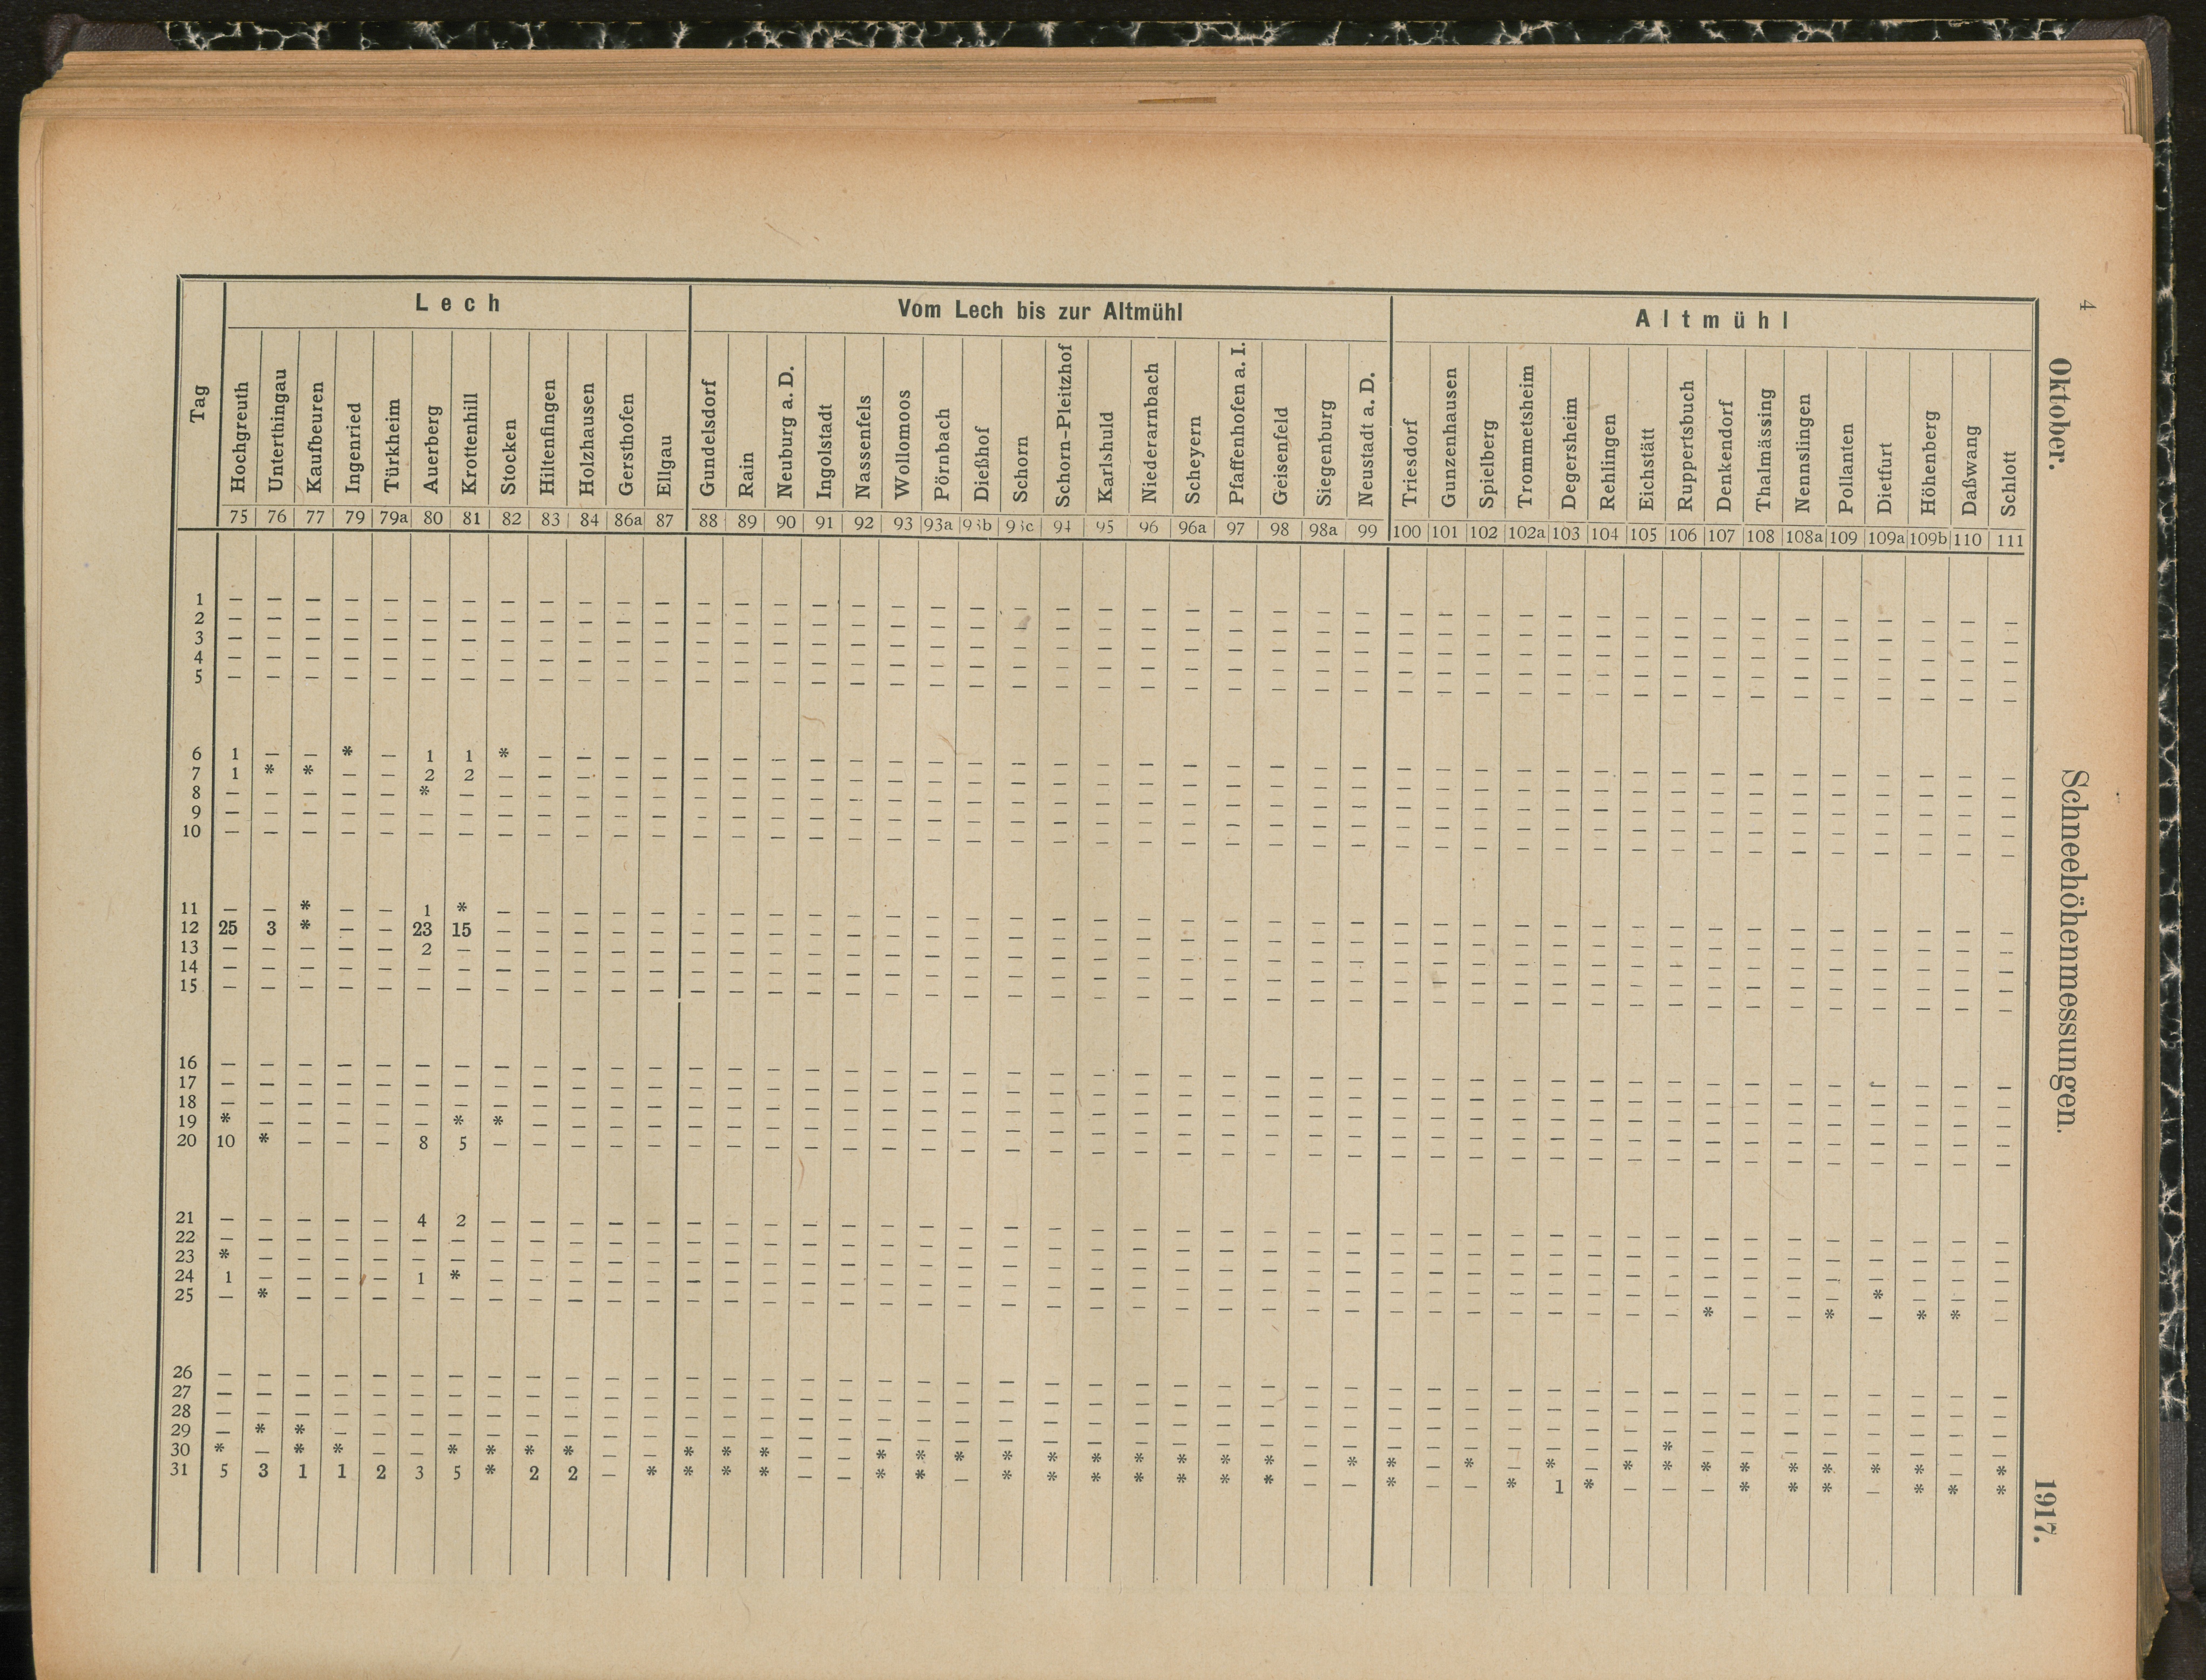 4
Oktober.
Schneehöhenmessungen.
1917.
Tag
Lech
Vom Lech bis zur Altmühl
Altmühl
Hochgreuth Unterthingau Kaufbeuren Ingenried Türkheim Auerberg Krottenhill Stocken Hiltenfingen Holzhausen Gersthofen Ellgau Gundelsdorf Rain Neuburg a. D. Ingolstadt Nassenfels Wollomoos Pörnbach Dießhof Schorn Schorn-Pleitzhof Karlshuld Niederarnbach Scheyern Pfaffenhofen a. I. Geisenfeld Siegenburg Neustadt a. D. Triesdorf Gunzenhausen Spielberg Trommetsheim Degersheim Rehlingen Eichstätt Ruppertsbuch Denkendorf Thalmässing Nennslingen Pollanten Dietfurt Höhenberg Daßwang Schlott
75 76 77 79 79a 80 81 82 83 84 86a 87 88 89 90 91 92 93 93a 93b 93c 94 95 96 96a 97 98 98a 99 100 101 102 102a 103 104 105 106 107 108 108a 109 109a 109b 110 111
1 — — — — — — — — — — — — — — — — — — — — — — — — — — — — — — — — — — — — — — — — — — — — —
2 — — — — — — — — — — — — — — — — — — — — — — — — — — — — — — — — — — — — — — — — — — — — —
3 — — — — — — — — — — — — — — — — — — — — — — — — — — — — — — — — — — — — — — — — — — — — —
4 — — — — — — — — — — — — — — — — — — — — — — — — — — — — — — — — — — — — — — — — — — — — —
5 — — — — — — — — — — — — — — — — — — — — — — — — — — — — — — — — — — — — — — — — — — — — —
6 1 — — * — 1 1 * — — — — — — — — — — — — — — — — — — — — — — — — — — — — — — — — — — — — —
7 1 * * — — 2 2 — — — — — — — — — — — — — — — — — — — — — — — — — — — — — — — — — — — — — —
8 — — — — — * — — — — — — — — — — — — — — — — — — — — — — — — — — — — — — — — — — — — — — —
9 — — — — — — — — — — — — — — — — — — — — — — — — — — — — — — — — — — — — — — — — — — — — —
10 — — — — — — — — — — — — — — — — — — — — — — — — — — — — — — — — — — — — — — — — — — — — —
11 — — * — — 1 * — — — — — — — — — — — — — — — — — — — — — — — — — — — — — — — — — — — — — —
12 25 3 * — — 23 15 — — — — — — — — — — — — — — — — — — — — — — — — — — — — — — — — — — — — — —
13 — — — — — 2 — — — — — — — — — — — — — — — — — — — — — — — — — — — — — — — — — — — — — — —
14 — — — — — — — — — — — — — — — — — — — — — — — — — — — — — — — — — — — — — — — — — — — — —
15 — — — — — — — — — — — — — — — — — — — — — — — — — — — — — — — — — — — — — — — — — — — — —
16 — — — — — — — — — — — — — — — — — — — — — — — — — — — — — — — — — — — — — — — — — — — — —
17 — — — — — — — — — — — — — — — — — — — — — — — — — — — — — — — — — — — — — — — — — — — — —
18 — — — — — — — — — — — — — — — — — — — — — — — — — — — — — — — — — — — — — — — — — — — — —
19 * — — — — — * * — — — — — — — — — — — — — — — — — — — — — — — — — — — — — — — — — — — — —
20 10 * — — — 8 5 — — — — — — — — — — — — — — — — — — — — — — — — — — — — — — — — — — — — — —
21 — — — — — 4 2 — — — — — — — — — — — — — — — — — — — — — — — — — — — — — — — — — — — — — —
22 — — — — — — — — — — — — — — — — — — — — — — — — — — — — — — — — — — — — — — — — — — — — —
23 * — — — — — — — — — — — — — — — — — — — — — — — — — — — — — — — — — — — — — — — — — — — —
24 1 — — — — 1 * — — — — — — — — — — — — — — — — — — — — — — — — — — — — — — — — — — * — — —
25 — * — — — — — — — — — — — — — — — — — — — — — — — — — — — — — — — — — — — * — — * — * * —
26 — — — — — — — — — — — — — — — — — — — — — — — — — — — — — — — — — — — — — — — — — — — — —
27 — — — — — — — — — — — — — — — — — — — — — — — — — — — — — — — — — — — — — — — — — — — — —
28 — — — — — — — — — — — — — — — — — — — — — — — — — — — — — — — — — — — — — — — — — — — — —
29 — * * — — — — — — — — — — — — — — — — — — — — — — — — — — — — — — — — — * — — — — — — — —
30 * — * * — — * * * * — — * * * — — * * * * * * * * * * — * * — * — * — * * * * * * * * — *
31 5 3 1 1 2 3 5 * 2 2 — * * * * — — * * — * * * * * * * — — * — — * 1 * — — — * * * — * * *